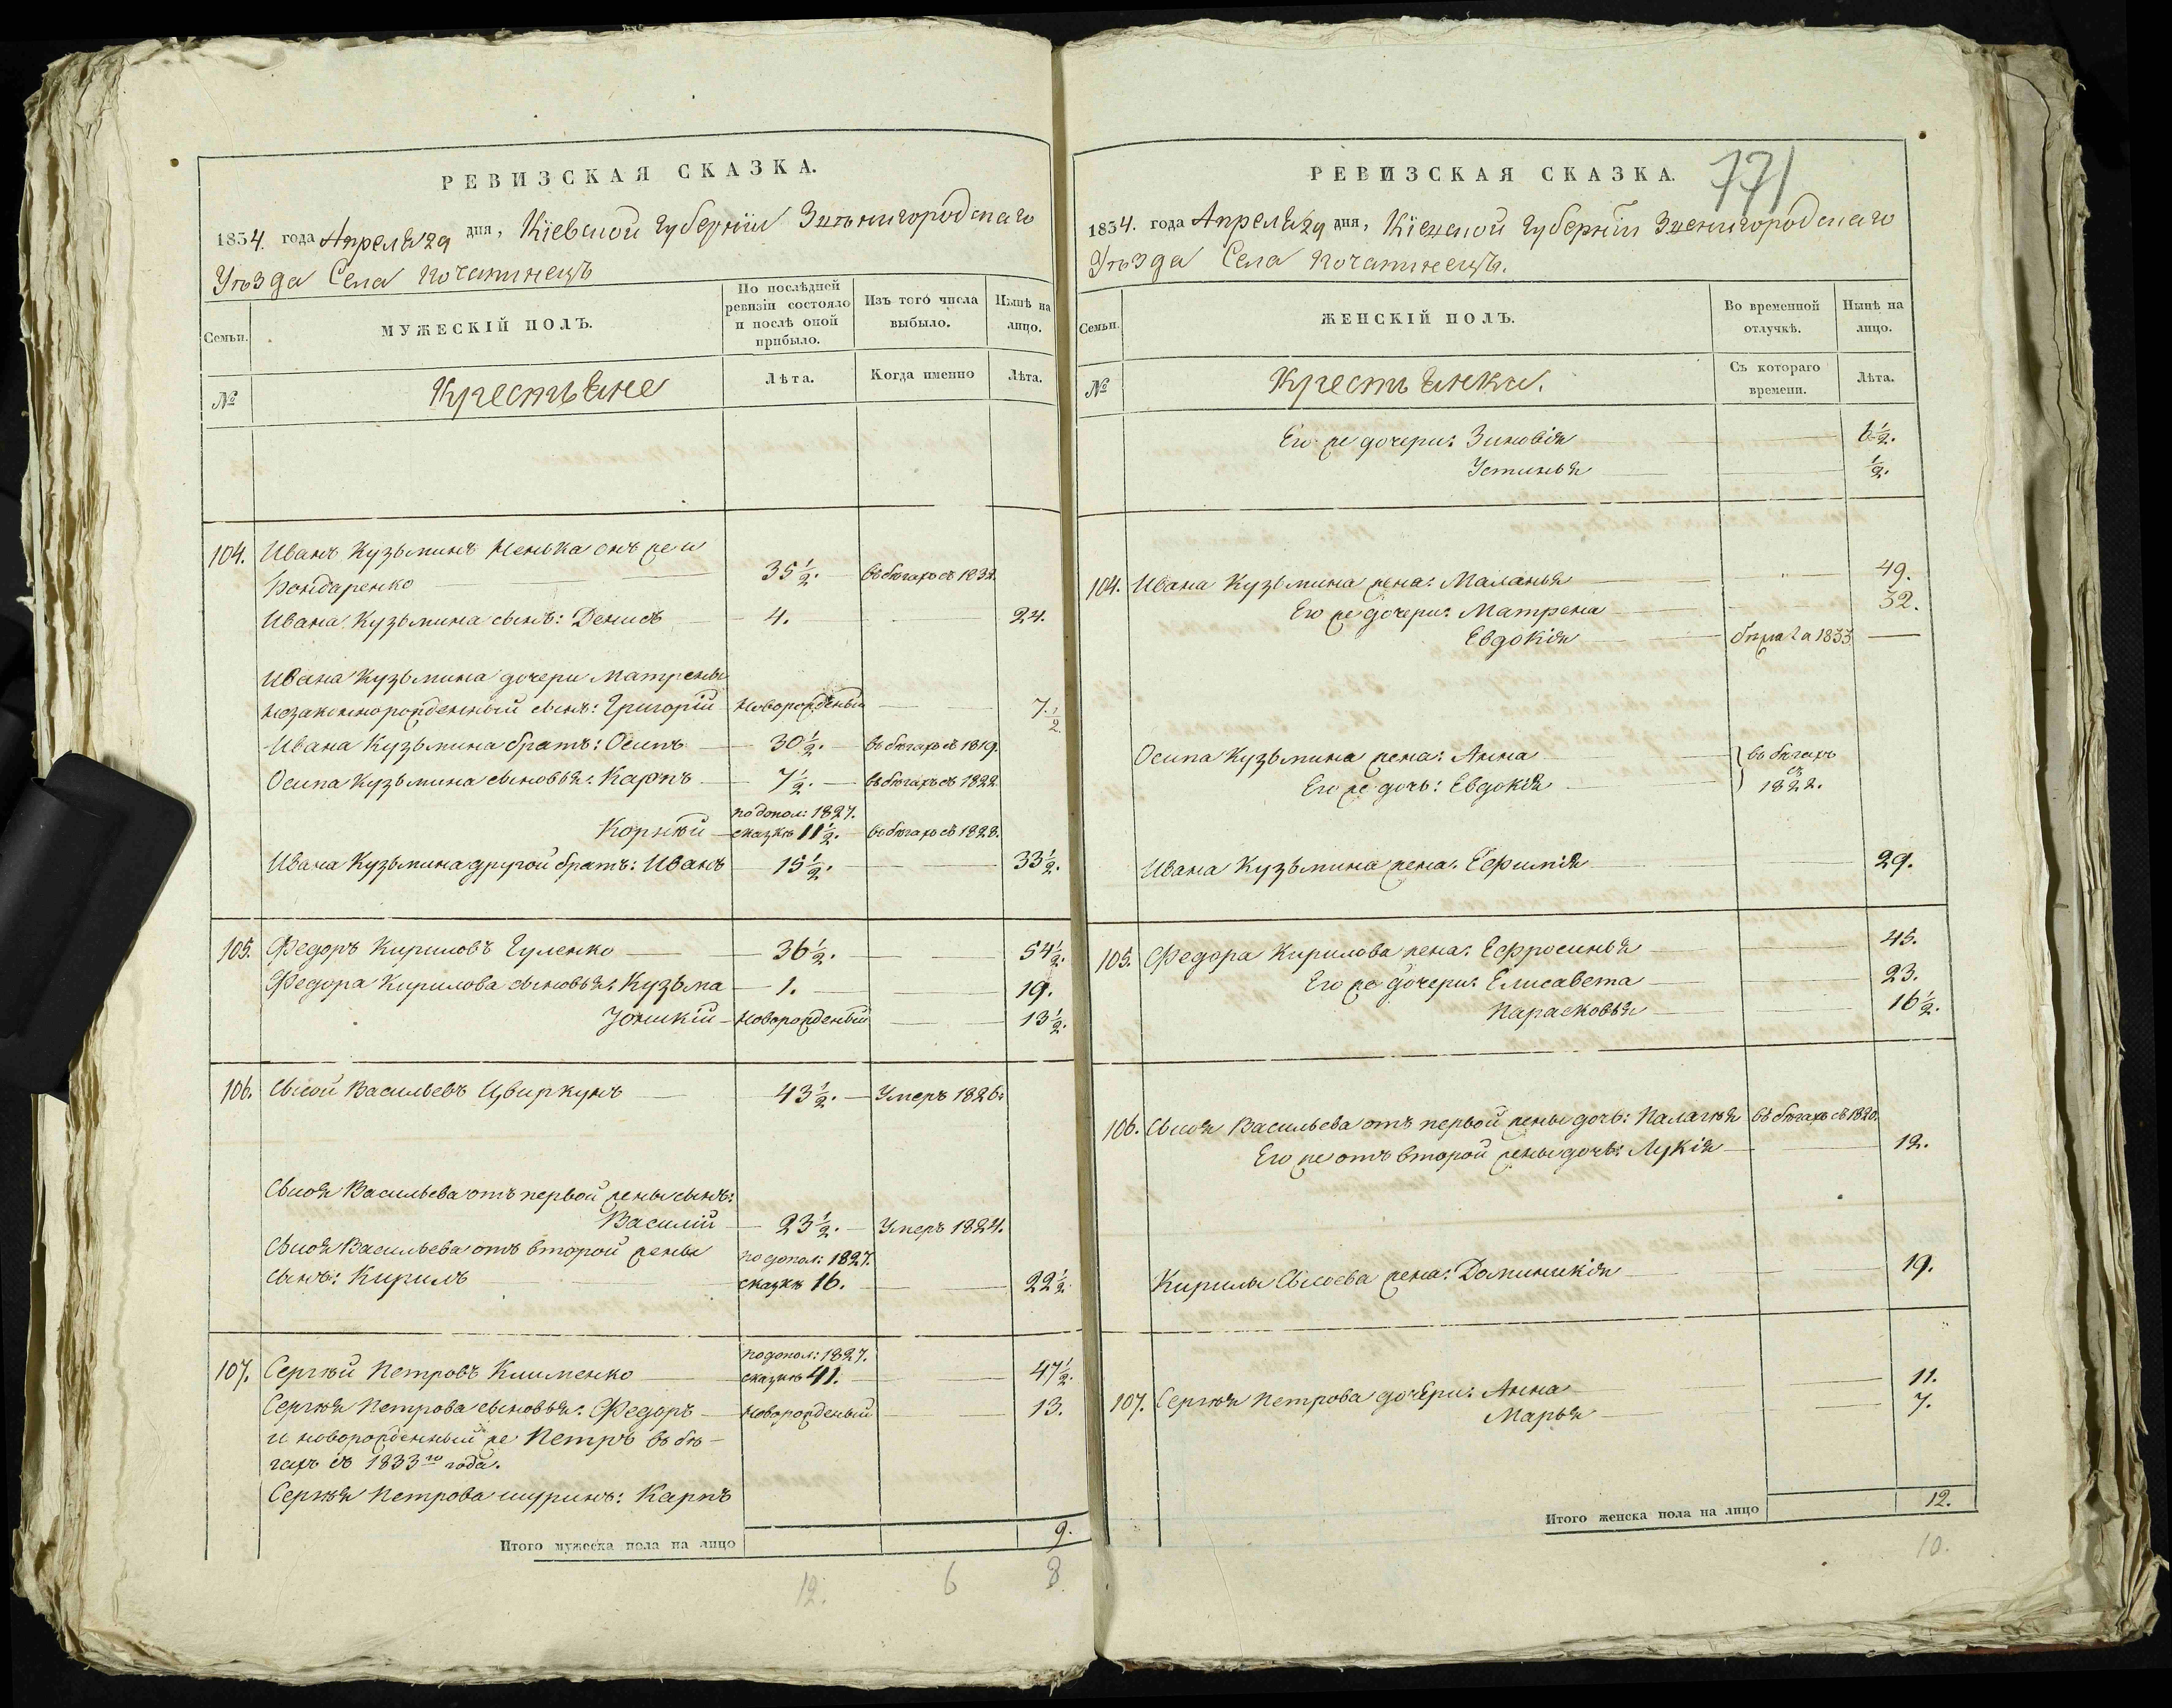 РЕВИЗСКАЯ СКАЗКА.
1834. года Апреля 29 дня, Кіевской Губерніи Звенигородскаго
Уѣзда Села Почапинецъ
Семьи.
МУЖЕСКІЙ ПОЛЪ.
По послѣдней
ревизіи состояло
и послѣ оной
прибыло.
Изъ того числа
выбыло.
Нынѣ на
лицо.
№
Крестьяне
Лѣта.
Когда именно
Лѣта.
104. Иванъ Кузьминъ онъ же и
Бондаренко 35 1/2. въ бѣгахъ съ
Ивана Кузьмина сынъ: Денисъ 4. 24.
Ивана Кузьмина дочери Матрены
незаконнорожденный сынъ: Григорій новорожденый 7. 1/2
Ивана Кузьмина братъ: Осипъ 30 1/2. въ бѣгахъ съ 1819.
Осипа Кузьмина сыновья: Карпъ 7 1/2. въ бѣгахъ съ 1822
по допол: 1827.
Корнѣй сказкѣ 11 1/2. въ бѣгахъ съ 1828.
Ивана Кузьмина другой братъ: Иванъ 15 1/2. 33 1/2.
105. Федоръ Кириловъ Гуленко 36 1/2. 54 1/2.
Федора Кирилова сыновья: Кузьма 1. 19.
Іоникій новорожденый 13 1/2.
106. Сысой Васильевъ Цвиркунъ 43 1/2. Умеръ 1826.
Сысоя Васильева отъ первой жены сынъ:
Василій 23 1/2. Умеръ 1824.
Сысоя Васильева отъ второй жены по допол: 1827.
сынъ: Кирилъ сказкѣ 16. 22 1/2
по допол: 1827.
107. Сергѣй Петровъ Клименко сказкѣ 41. 47 1/2.
Сергѣя Петрова сыновья: Федоръ новорожденый 13.
и новорожденный же Петръ въ бѣ-
гахъ съ 1833го года.
Сергѣя Петрова шуринъ: Карпъ
Итого мужеска пола на лицо 9.
12. 6 8
771
РЕВИЗСКАЯ СКАЗКА.
1834. года Апреля 29 дня, Кіевской Губерніи Звенигородскаго
Уѣзда Села Почапинецъ.
Семьи.
ЖЕНСКІЙ ПОЛЪ.
Во временной
отлучкѣ.
Нынѣ на
лицо.
№
Крестьянки.
Съ котораго
времени.
Лѣта.
Его же дочери: Зиновія 6 1/2.
Устинья 1/2.
104. Ивана Кузьмина жена: Маланья 49.
Его же дочери: Матрена 32.
Евдокія 1833
Осипа Кузьмина жена: Анна въ бѣгахъ
съ
Его же дочь: Евдокія 1822.
Ивана Кузьмина жена: Ефимія 29.
105. Федора Кирилова жена: Ефросинья 45.
Его же дочери: Елисавета 23.
Парасковья 16 1/2.
106. Сысоя Васильева отъ первой жены дочь: Палагѣя въ бѣгахъ съ 1820.
Его же отъ второй жены дочь: Лукія 12.
Кирилы Сысоева жена: Доминикія 19.
107. Сергѣя Петрова дочери: Анна 11.
Марья 7.
Итого женска пола на лицо 12.
10.